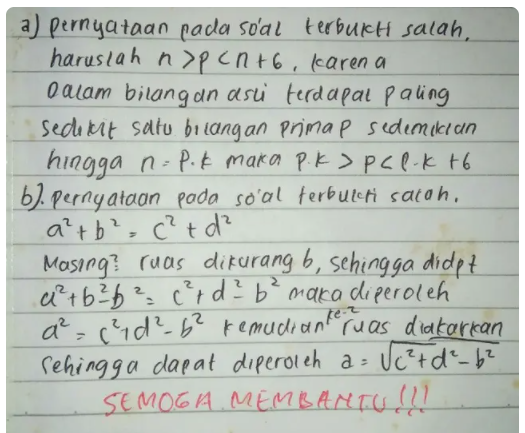 a) pernyataan pada so'al terbukti salah,
haruslah n > p < n + 6, karena
Dalam bilangan asli terdapat paling
sedikit satu bilangan prima p sedemikian
hingga n = p.k maka p.k > p < p.k + 6
b). pernyataan pada so'al terbukti salah.
a² + b² = c² + d²
Masing² ruas dikurang b, sehingga didpt
a² + b² - b² = c² + d² - b² maka diperoleh
a² = c² + d² - b² kemudian ke-2 ruas diakarkan
sehingga dapat diperoleh a = √c² + d² - b²
SEMOGA MEMBANTU!!!